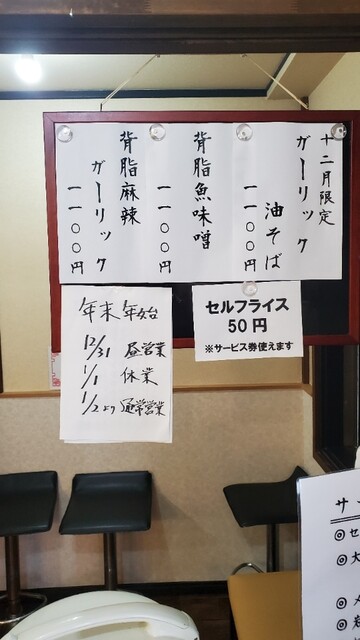 十二月限定
ガーリック
油そば
一一〇〇円
背脂魚味噌
一一〇〇円
背脂麻辣
ガーリック
一一〇〇円
セルフライス
50円
※サービス券使えます
年末年始
12/31 昼営業
1/1 休業
1/2より通常営業
サ
◎セ
◎大